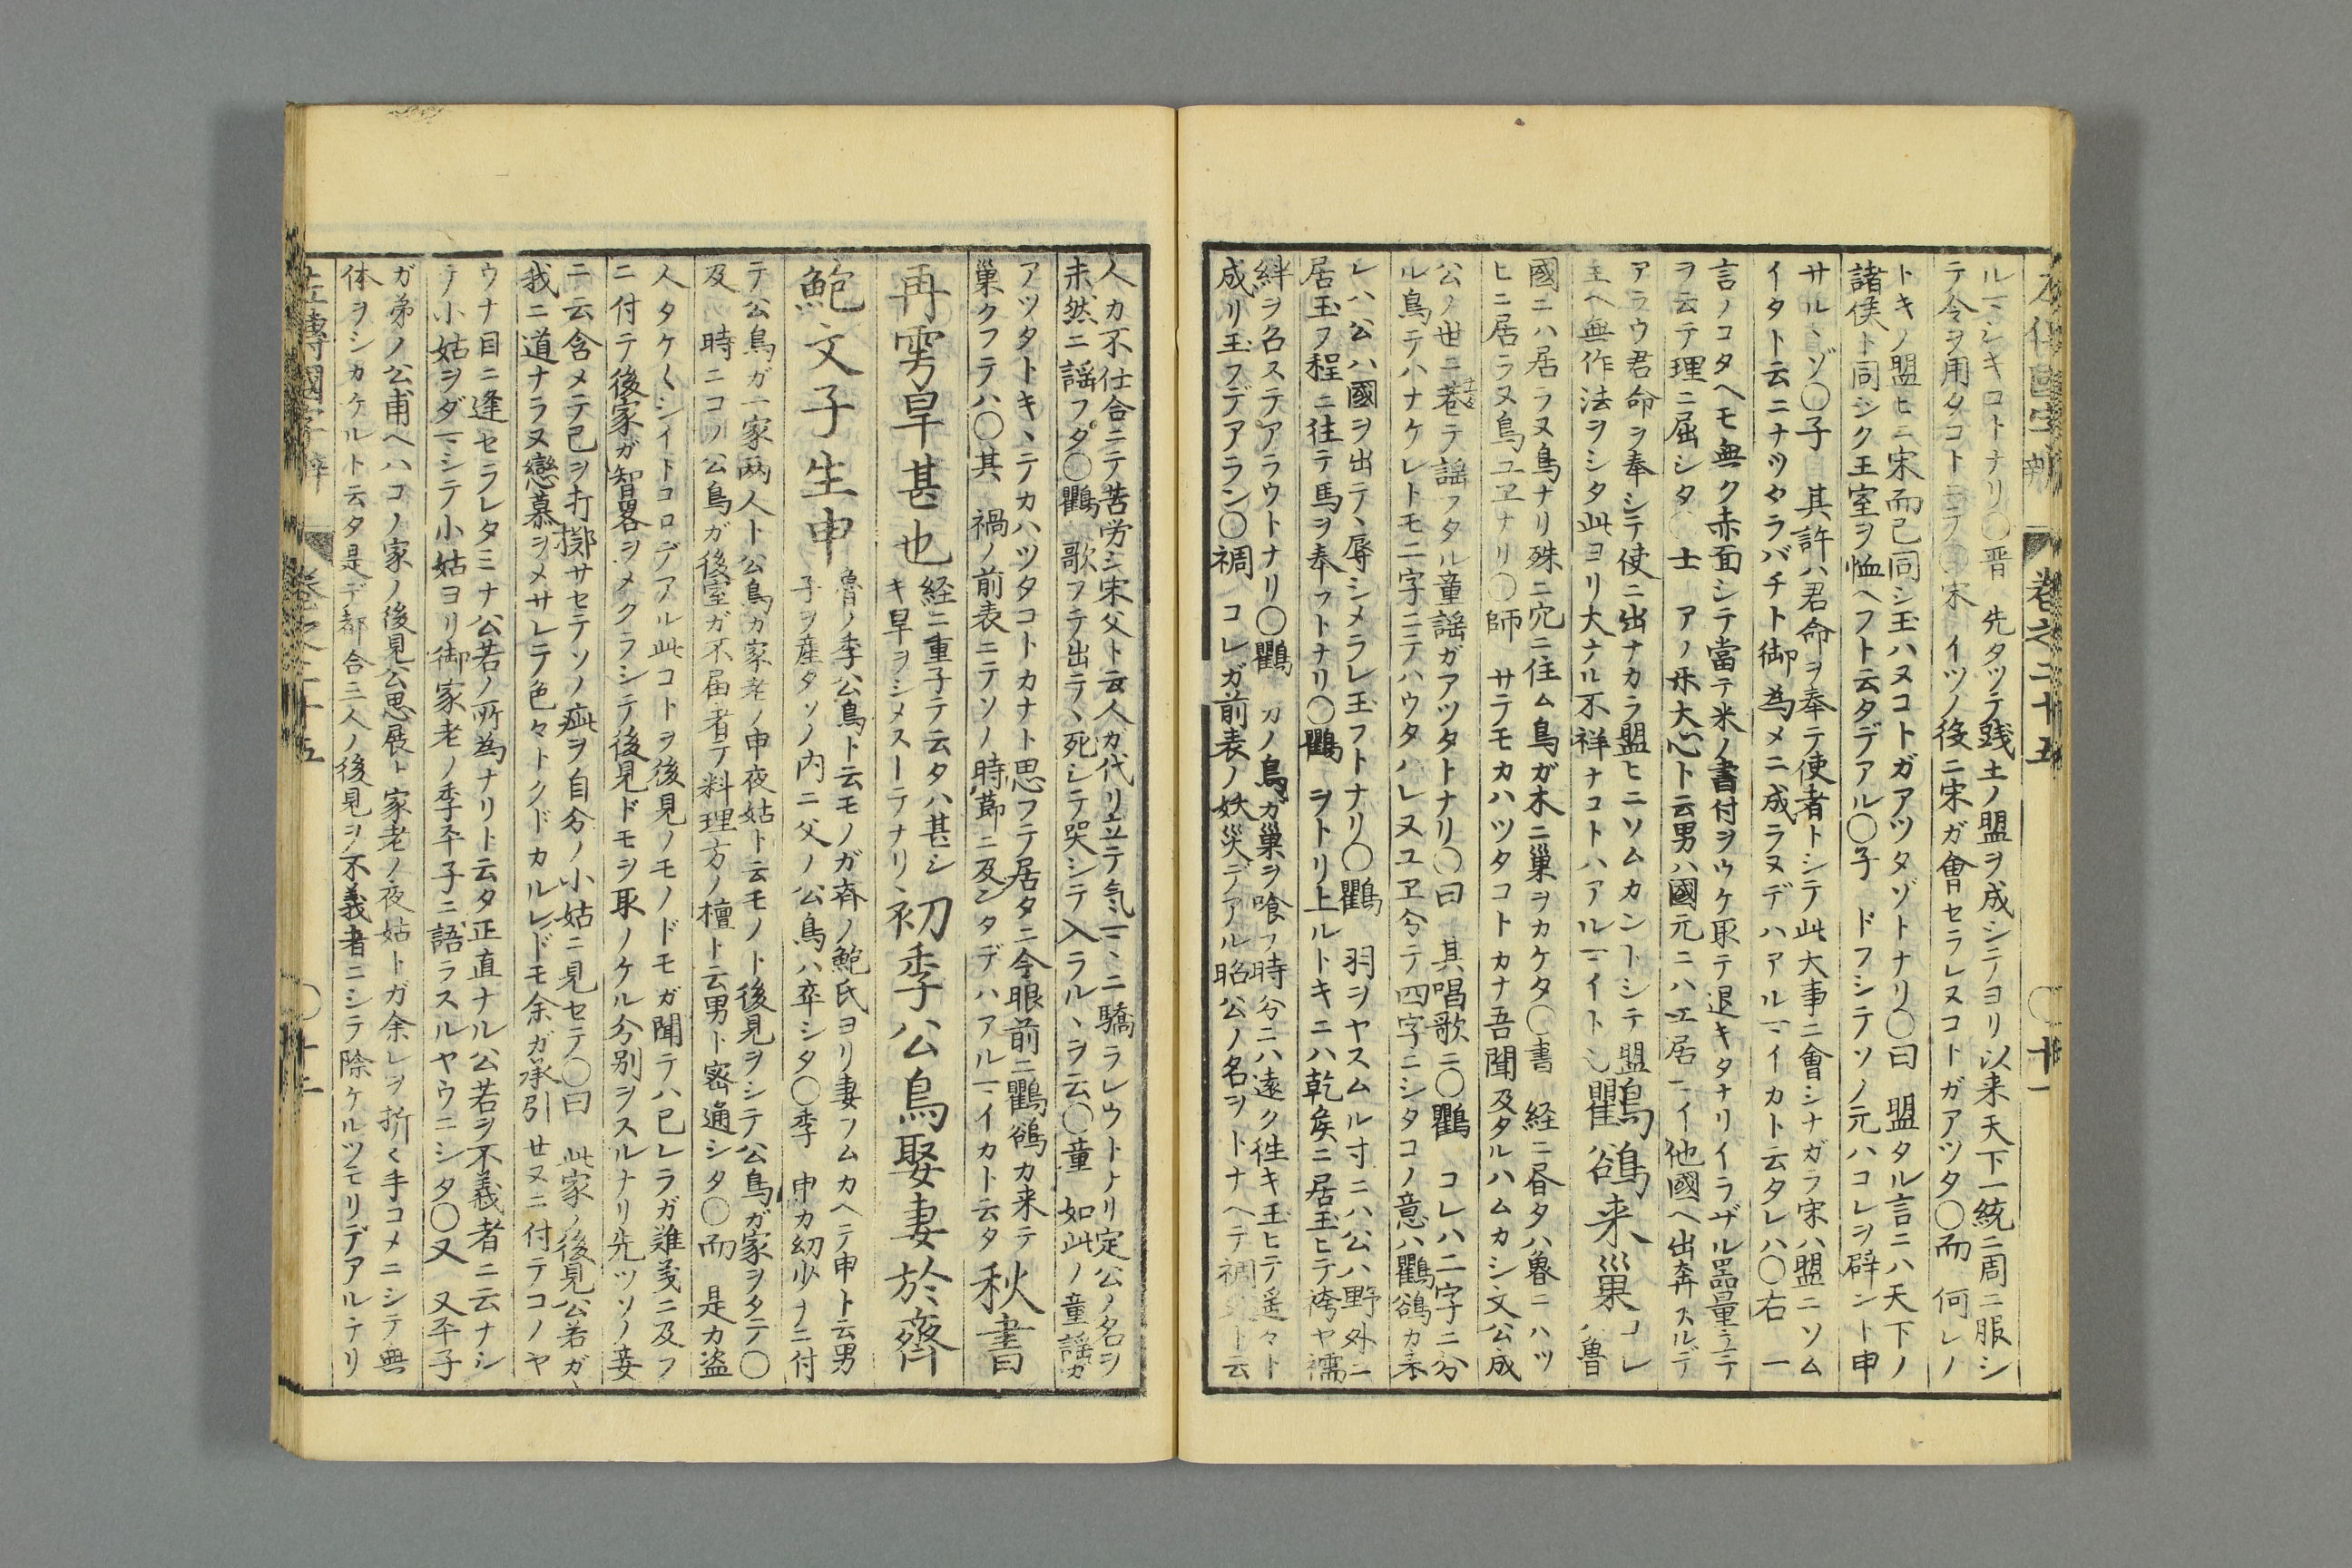 左傳國字辯 卷之二十五 〇十一
ルマシキコトナリ〇晋 先タツテ践土ノ盟ヲ成シテヨリ以来天下一統ニ周ニ服シ
テ令ヲ用タコトニテ〇宋 イツノ後ニ宋ガ會セラレヌコトガアツタ〇而 何レノ
トキノ盟ヒニ宋而已同シ玉ハヌコトガアツタゾトナリ〇曰 盟タル言ニハ天下ノ
諸侯ト同シク王室ヲ恤ヘフト云タデアル〇子 ドフシテソノ元ハコレヲ辟ント申
サル ゾ〇子 其許ハ君命ヲ奉テ使者トシテ此大事ニ會シナガラ宋ハ盟ニソム
イタト云ニナツタラバチト御為メニ成ラヌデハアルマイカト云タレハ〇右 一
言ノコタヘモ無ク赤面シテ當テ米ノ書付ヲウケ取テ退キタナリイラザル器量立テ
ヲ云テ理ニ屈シタ〇士 アノ楽大心ト云男ハ國元ニハエ居マイ他國ヘ出奔スルデ
アラウ君命ヲ奉シテ使ニ出ナカラ盟ヒニソムカントシテ盟
主ヘ無作法ヲシタ此ヨリ大ナル不祥ナコトハアルマイトシ 鸜鵒来巢 コレハ魯
國ニハ居ラヌ鳥ナリ殊ニ穴ニ住ム鳥ガ木ニ巢ヲカケタ〇書 経ニ昏タハ魯ニハツ
ヒニ居ラヌ鳥ユヱナリ〇師 サテモカハツタコトカナ吾聞及タルハムカシ文公成
公ノ世ニ巷テ謡フタル童謡ガアツタトナリ〇曰 其唱歌ニ〇鸜 コレハ二字ニ分
ル鳥テハナケレトモ二字ニテハウタハレヌユヱ分テ四字ニシタコノ意ハ鸜鵒カ来
レハ公ハ國ヲ出テヽ辱シメラレ玉フトナリ〇鸜 羽ヲヤスムル寸ニハ公ハ野外ニ
居玉フ程ニ往テ馬ヲ奉フトナリ〇鸜 ヲトリ上ルトキニハ乾侯ニ居玉ヒテ袴ヤ襦
絆ヲ名ステアラウトナリ〇鸜 カノ鳥カ巢ヲ喰フ時分ニハ遠ク徃キ玉ヒテ遥々ト
成リ玉フデアラン〇禂 コレガ前表ノ妖災デアル昭公ノ名ヲトナヘテ禂父ト云
人カ不仕合ニテ苦労シ宋父ト云人カ代リ立テ気マヽニ驕ラレウトナリ定公ノ名ヲ
未然ニ謡フタ〇鸜 歌フテ出テヽ死シテ哭シテ入ラルヽヲ云〇童 如此ノ童謡カ
アツタトキヽテカハツタコトカナト思フテ居タニ今眼前ニ鸜鵒カ来テ
巢クフテハ〇其 禍ノ前表ニテソノ時莭ニ及ンタデハアルマイカト云タ 秋書
再雩旱甚也 経ニ重子テ云タハ甚シ
キ旱ヲシメスーテナリ 初季公鳥娶妻於齊
鮑文子生申 魯ノ季公鳥ト云モノガ斉ノ鮑氏ヨリ妻フムカヘテ申ト云男
子ヲ産タソノ内ニ父ノ公鳥ハ卒シタ〇季 申カ幼少ナニ付
テ公鳥ガ一家两人ト公鳥カ家老ノ申夜姑ト云モノト後見ヲシテ公鳥ガ家ヲタテ〇
及 時ニコノ公鳥ガ後室ガ不届者テ料理方ノ檀ト云男ト密通シタ〇而 是カ盗
人タケ〱シイトコロデアル此コトヲ後見ノモノドモガ聞テハ已レラガ難義ニ及フ
ニ付テ後家ガ智畧ヲメクラシテ後見ドモヲ取ノケル分別ヲスルナリ先ツソノ妾
ニ云含メテ己ヲ打擲サセテソノ疵ヲ自分ノ小姑ニ見セテ〇曰 此家ノ後見公若ガ
我ニ道ナラヌ戀慕ヲメサレテ色々トクドカルレドモ余ガ承引セヌニ付テコノヤ
ウナ目ニ逢セラレタミナ公若ノ所為ナリト云タ正直ナル公若ヲ不義者ニ云ナシ
テ小姑ヲダマシテ小姑ヨリ御家老ノ季平子ニ語ラスルヤウニシタ〇又 又平子
ガ弟ノ公甫ヘハコノ家ノ後見公思展ト家老ノ夜姑トガ余レヲ折〱手コメニシテ無
体ヲシカケルト云タ是デ都合三人ノ後見ヲ不義者ニシテ除ケルツモリデアルテリ
左傳國字辯 卷之二十五 〇十二